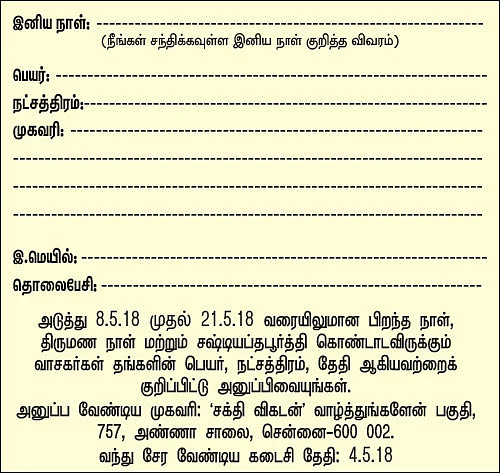 இனிய நாள்: ------------------------------------------------------------
(நீங்கள் சந்திக்கவுள்ள இனிய நாள் குறித்த விவரம்)
பெயர்: ------------------------------------------------------------------
நட்சத்திரம்:--------------------------------------------------------------
முகவரி: ----------------------------------------------------------------
-------------------------------------------------------------------------
-------------------------------------------------------------------------
-------------------------------------------------------------------------
இ.மெயில்: ---------------------------------------------------------------
தொலைபேசி: ------------------------------------------------------------
அடுத்து 8.5.18 முதல் 21.5.18 வரையிலுமான பிறந்த நாள்,
திருமண நாள் மற்றும் சஷ்டியப்தபூர்த்தி கொண்டாடவிருக்கும்
வாசகர்கள் தங்களின் பெயர், நட்சத்திரம், தேதி ஆகியவற்றைக்
குறிப்பிட்டு அனுப்பிவையுங்கள்.
அனுப்ப வேண்டிய முகவரி: ‘சக்தி விகடன்’ வாழ்த்துங்களேன் பகுதி,
757, அண்ணா சாலை, சென்னை-600 002.
வந்து சேர வேண்டிய கடைசி தேதி: 4.5.18